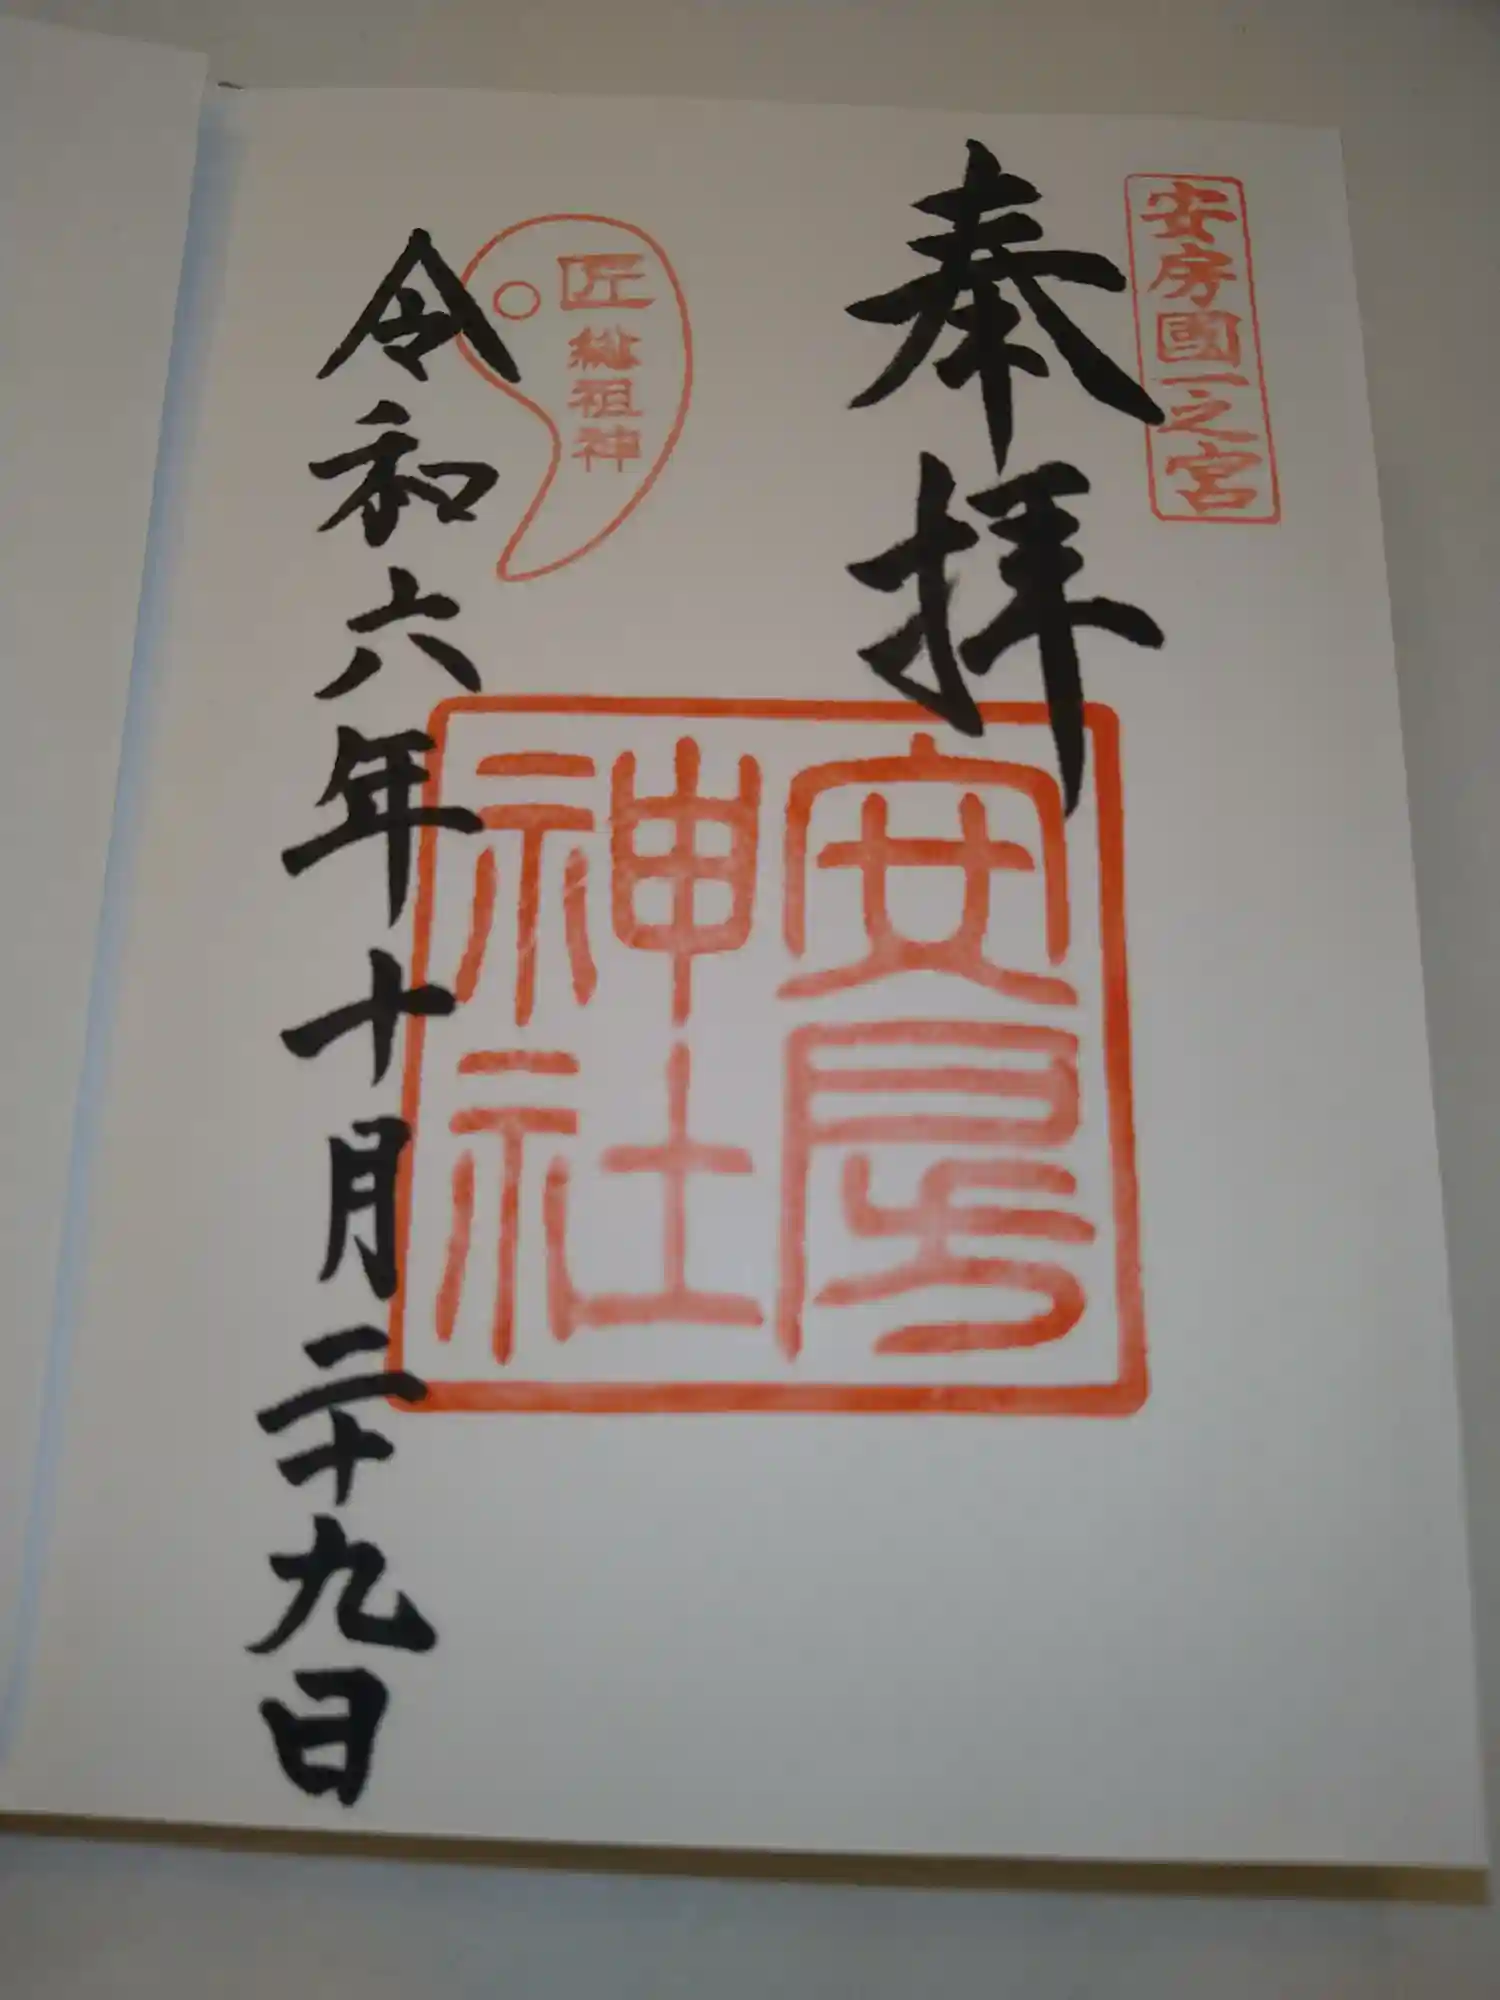 安房國一之宮
奉拝
安房
神社
匠総祖神
令和六年十月二十九日